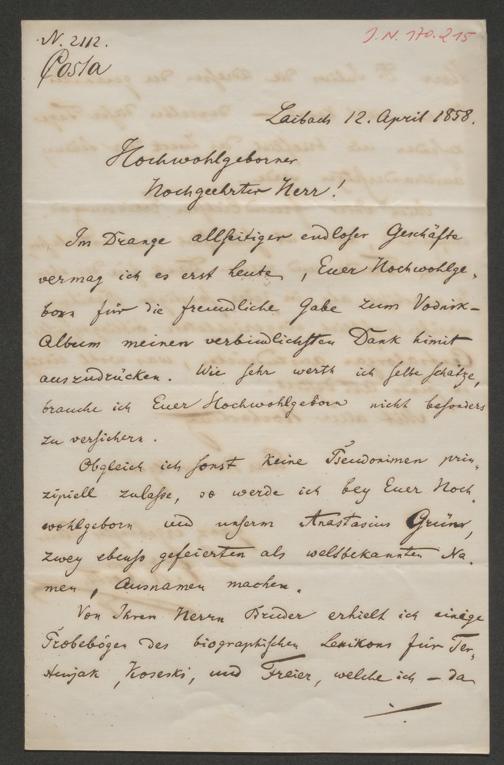 N. 2112.
J. N. 170.215
Costa
Laibach 12. April 1858.
Hochwohlgeborner
Hochgeehrter Herr!
Im Drange allseitiger endloser Geschäfte
vermag ich es erst heute, Euer Hochwohlge-
born für die freundliche Gabe zum Vodnik-
Album meinen verbindlichsten Dank himit
auszudrücken. Wie sehr werth ich selbe schätze,
brauche ich Euer Hochwohlgeborn nicht besonders
zu versichern.
Obgleich ich sonst keine Pseudonimen prin-
zipiell zulasse, so werde ich bey Euer Hoch
wohlgeborn und unserm Anastasius Grün,
zwey ebenso gefeierten als weltbekannten Na-
men, Ausnamen machen.
Von Ihren Herrn Bruder erhielt ich einige
Probebögen des biographischen Lexikons für
Koseski, und Freier, welche ich – da